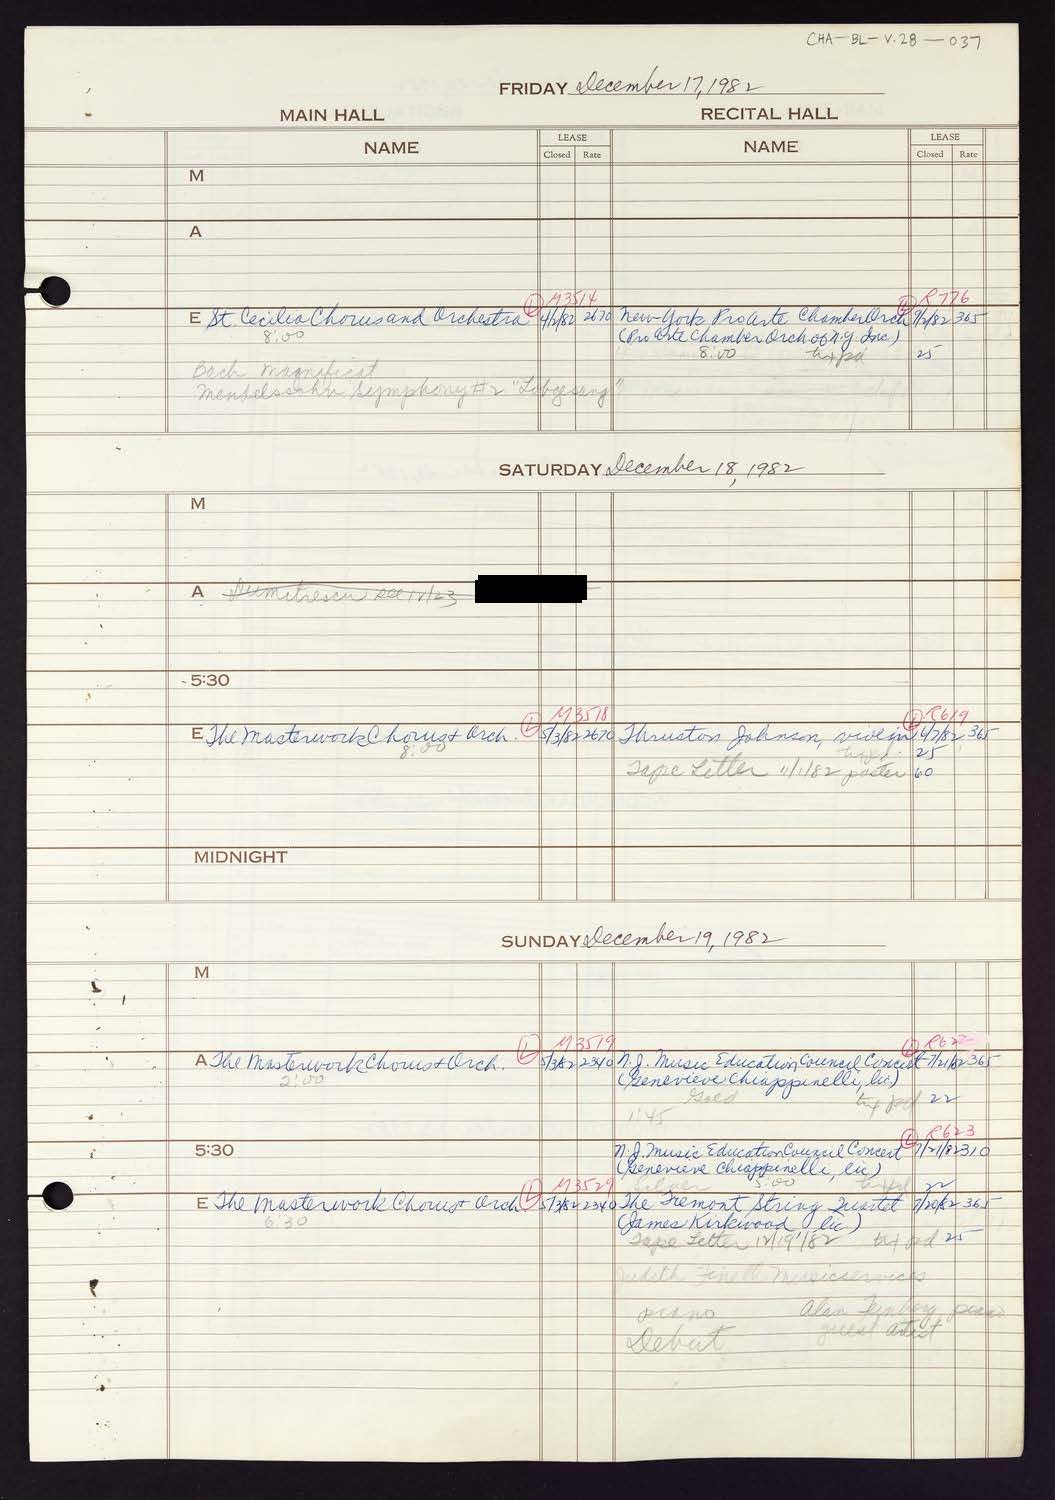 CHA-BL-V.28-037
FRIDAY December 17, 1982
MAIN HALL RECITAL HALL
NAME LEASE Closed Rate NAME LEASE Closed Rate
M
A
M3514 R776
E St. Cecilia Chorus and Orchestra L 4/1/82 2670 New York Pro Arte Chamber Orch L 9/2/82 365
8:00 (Pro Arte Chamber Orch of N.Y. Inc.)
8:00 tax pd 25
Bach Magnificat
Mendelssohn Symphony #2 "Lobgesang"
SATURDAY December 18, 1982
M
A Dumitrescu see 12/23
5:30
M3518 R619
E The Masterwork Chorus + Orch. L 5/3/82 2670 Thruston Johnson, violin L 6/7/82 365
8:00 tax pd. 25
Tape Letter 11/1/82 poster 60
MIDNIGHT
SUNDAY December 19, 1982
M
M3519 R622
A The Masterwork Chorus + Orch. L 5/3/82 2340 N.J. Music Education Council Concert L 7/21/82 365
2:00 (Genevieve Chiappinelli, lic.)
Gold tax pd 22
1:45
R623
5:30 N.J. Music Education Council Concert L 7/21/82 310
(Genevieve Chiappinelli, lic)
M3529 Silver 5:00 tax pd 22
E The Masterwork Chorus + Orch L 5/3/82 2340 The Fremont String Quartet 7/20/82 365
6:30 (James Kirkwood, lic)
Tape Letter 12/19/82 tax pd 25
Judith Finell Musicservices
piano Alan Feinberg, piano
Debut guest artist